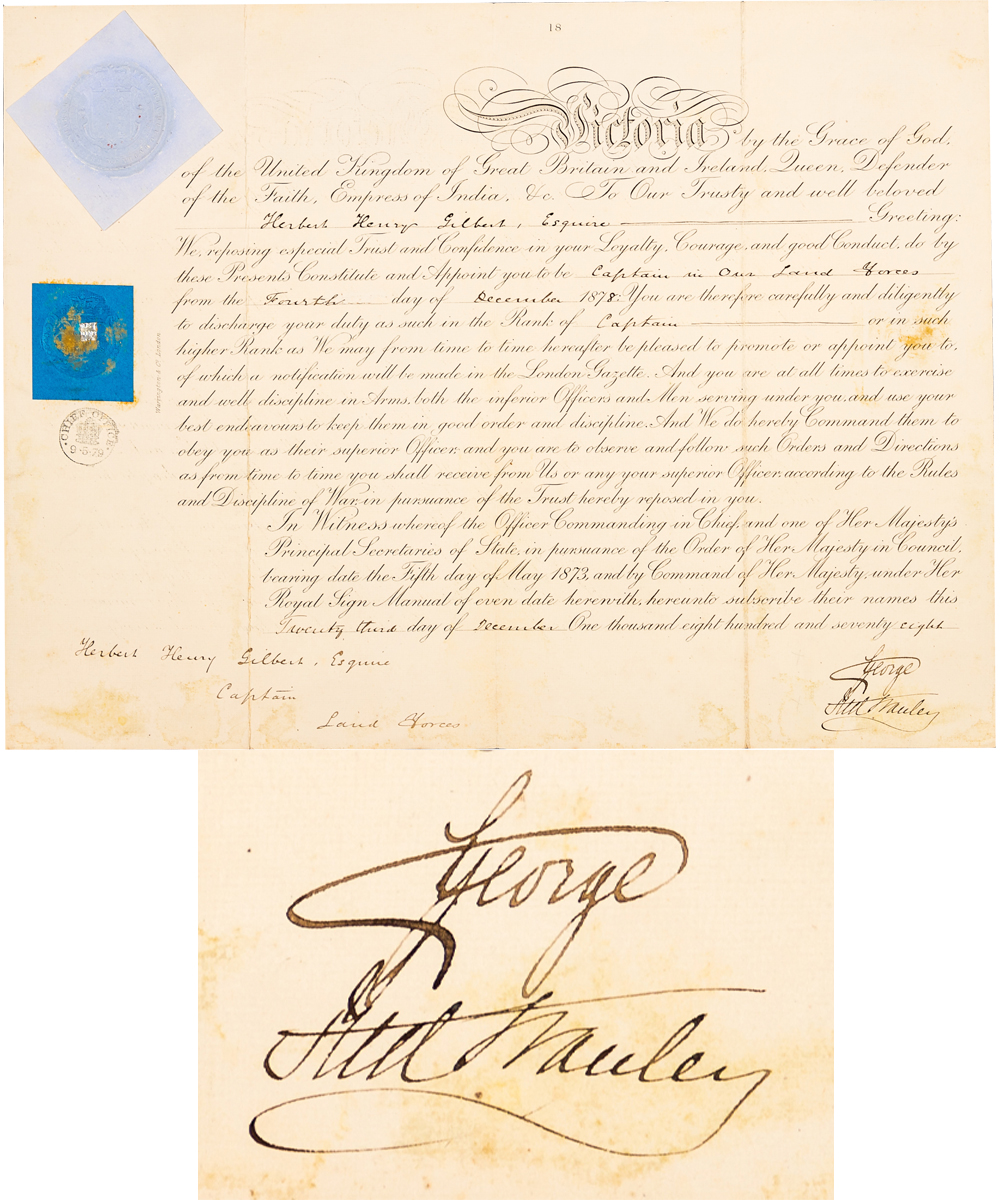 18
Victoria by the Grace of God,
of the United Kingdom of Great Britain and Ireland, Queen, Defender
of the Faith, Empress of India, &c. To Our Trusty and well beloved
Herbert Henry Gilbert, Esquire Greeting:
We, reposing especial Trust and Confidence in your Loyalty, Courage, and good Conduct, do by
these Presents Constitute and Appoint you to be Captain in Our Land Forces
from the Fourth day of December 1878. You are therefore carefully and diligently
to discharge your duty as such in the Rank of Captain or in such
higher Rank as We may from time to time hereafter be pleased to promote or appoint you to,
of which a notification will be made in the London Gazette. And you are at all times to exercise
and well discipline in Arms, both the inferior Officers and Men serving under you, and use your
best endeavours to keep them in good order and discipline. And We do hereby Command them to
obey you as their superior Officer, and you are to observe and follow such Orders and Directions
as from time to time you shall receive from Us or any your superior Officer, according to the Rules
and Discipline of War, in pursuance of the Trust hereby reposed in you.
In Witness whereof the Officer Commanding in Chief, and one of Her Majesty's
Principal Secretaries of State, in pursuance of the Order of Her Majesty in Council,
bearing date the Fifth day of May 1873, and by Command of Her Majesty, under Her
Royal Sign Manual of even date herewith, hereunto subscribe their names this
Twenty third day of December One thousand eight hundred and seventy eight
Herbert Henry Gilbert, Esquire
Captain
Land Forces
CHIEF OFFICE
9-5-79
Warrington & Co. London.
George
Fred Stanley
George
Fred Stanley